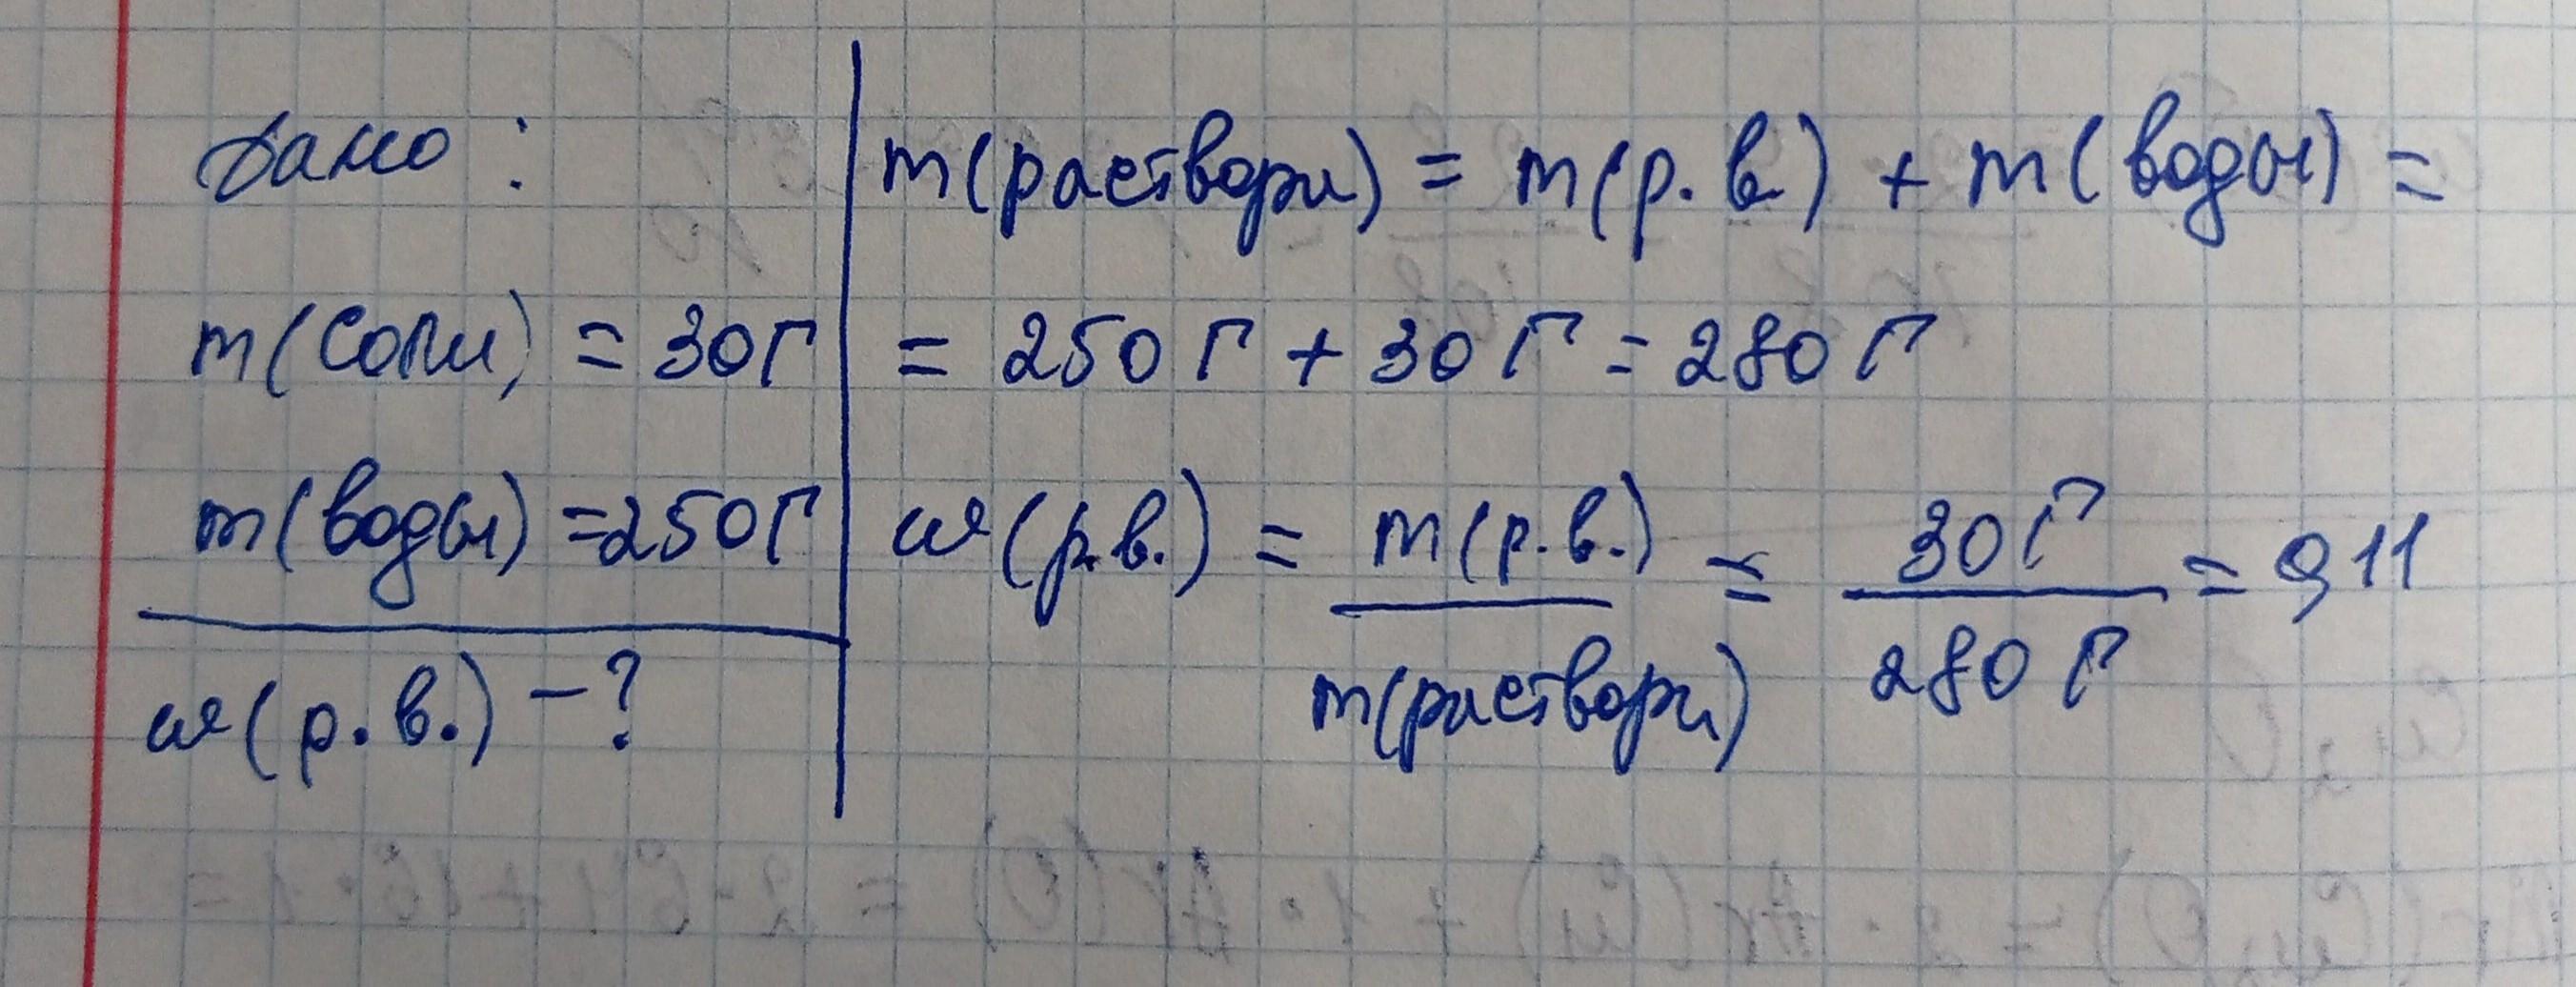 Дано:
m(соли) = 30г
m(воды) = 250г
ω(р.в.) - ?
m(раствора) = m(р.в) + m(воды) =
= 250 г + 30 г = 280 г
ω(р.в.) = m(р.в.) / m(раствора) = 30 г / 280 г = 0,11